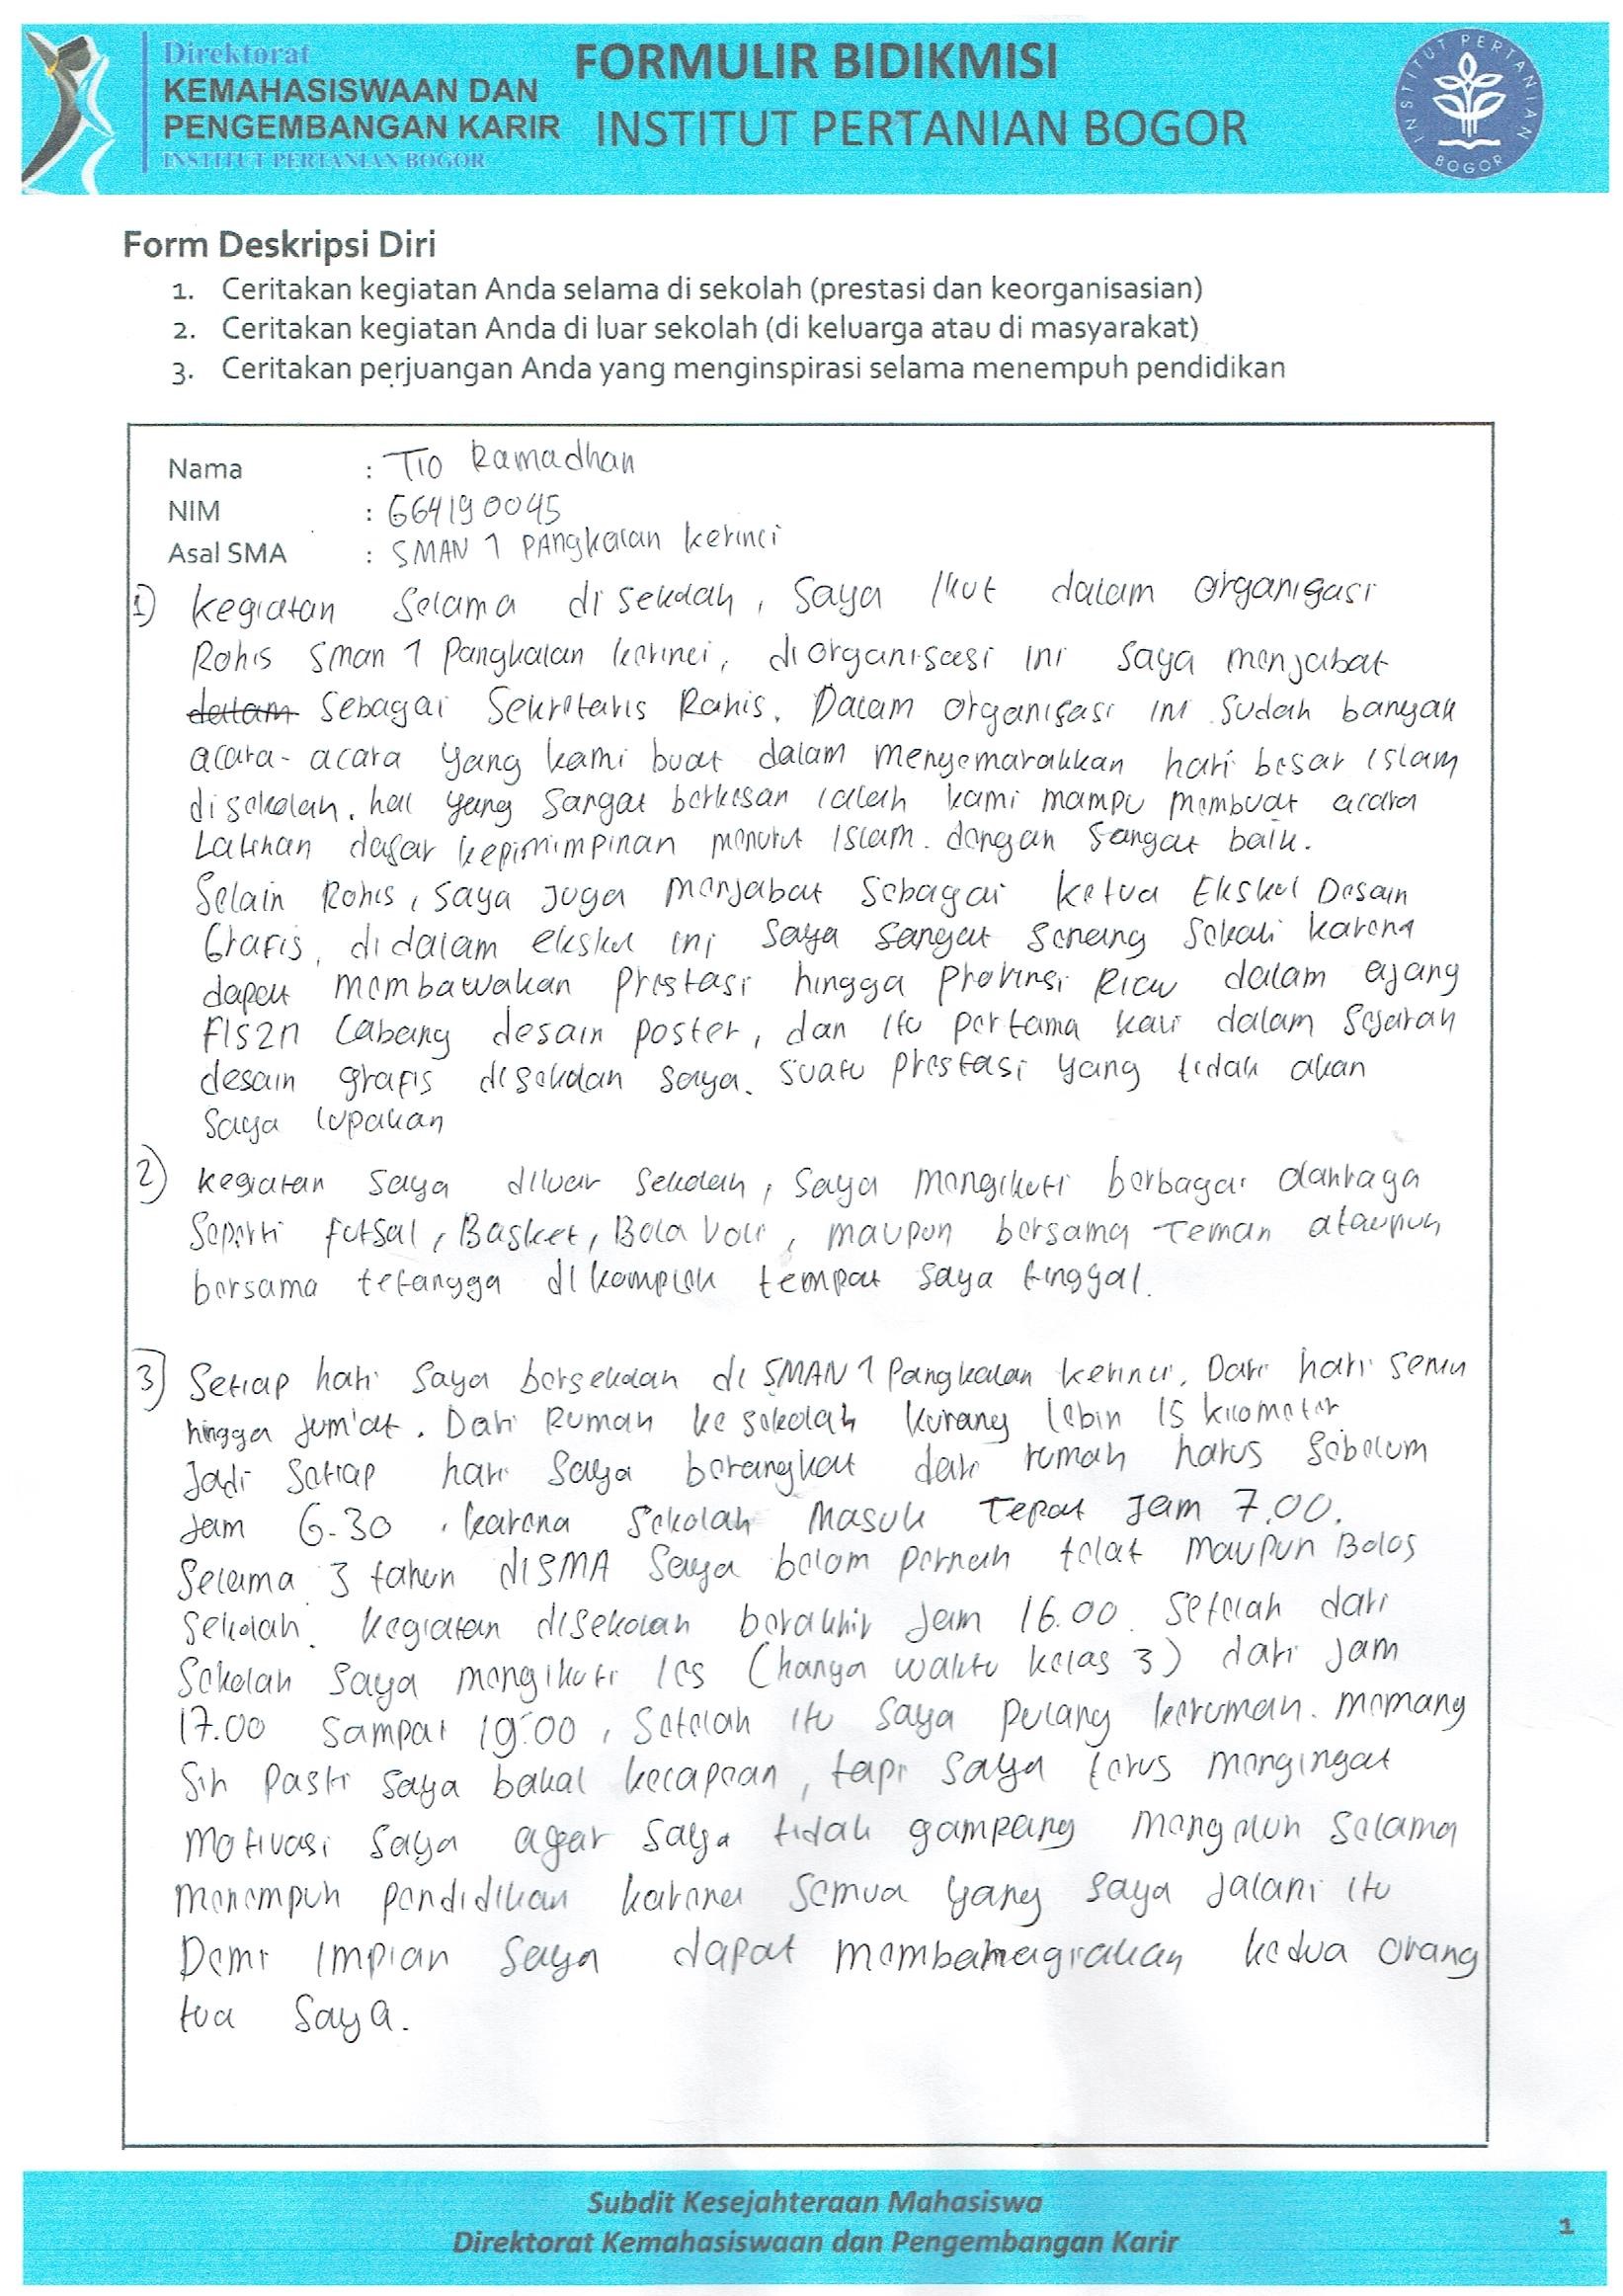 Direktorat
KEMAHASISWAAN DAN
PENGEMBANGAN KARIR
INSTITUT PERTANIAN BOGOR
FORMULIR BIDIKMISI
INSTITUT PERTANIAN BOGOR
INSTITUT PERTANIAN
BOGOR
Form Deskripsi Diri
1. Ceritakan kegiatan Anda selama di sekolah (prestasi dan keorganisasian)
2. Ceritakan kegiatan Anda di luar sekolah (di keluarga atau di masyarakat)
3. Ceritakan perjuangan Anda yang menginspirasi selama menempuh pendidikan
Nama : Tio Ramadhan
NIM : G64190045
Asal SMA : SMAN 1 Pangkalan Kerinci
1) Kegiatan selama di sekolah, saya ikut dalam organisasi
Rohis Sman 1 Pangkalan Kerinci, diorganisasi ini saya menjabat
dalam sebagai Sekretaris Rohis. Dalam organisasi ini sudah banyak
acara-acara yang kami buat dalam menyemarakkan hari besar Islam
disekolah. hal yang sangat berkesan ialah kami mampu membuat acara
Latihan dasar kepimimpinan menurut Islam. dengan sangat baik.
Selain Rohis, saya juga menjabat sebagai ketua Ekskul Desain
Grafis, didalam ekskul ini saya sangat senang sekali karena
dapat membawakan prestasi hingga Provinsi Riau dalam ajang
Fls2n Cabang desain poster, dan itu pertama kali dalam sejarah
desain grafis disekolah saya. suatu prestasi yang tidak akan
saya lupakan
2) Kegiatan saya diluar sekolah, saya mengikuti berbagai olahraga
Seperti futsal, Basket, Bola Voli, maupun bersama teman ataupun
bersama tetangga dikomplek tempat saya tinggal.
3) Setiap hari saya bersekolah di SMAN 1 Pangkalan Kerinci. Dari hari senin
hingga Jum'at. Dari Rumah ke sekolah kurang lebih 15 kilometer
Jadi setiap hari saya berangkat dari rumah harus sebelum
Jam 6.30, karena sekolah Masuk Tepat Jam 7.00.
Selama 3 tahun diSMA saya belom pernah telat maupun Bolos
Sekolah. Kegiatan disekolah berakhir Jam 16.00. Setelah dari
Sekolah saya mengikuti les (hanya waktu kelas 3) dari jam
17.00 sampai 19.00, setelah itu saya pulang kerumah. memang
sih pasti saya bakal kecapean, tapi saya terus mengingat
motivasi saya agar saya tidak gampang mengeluh selama
menempuh pendidikan karena semua yang saya jalani itu
Demi impian saya dapat membahagiakan kedua orang
tua saya.
Subdit Kesejahteraan Mahasiswa
Direktorat Kemahasiswaan dan Pengembangan Karir
1